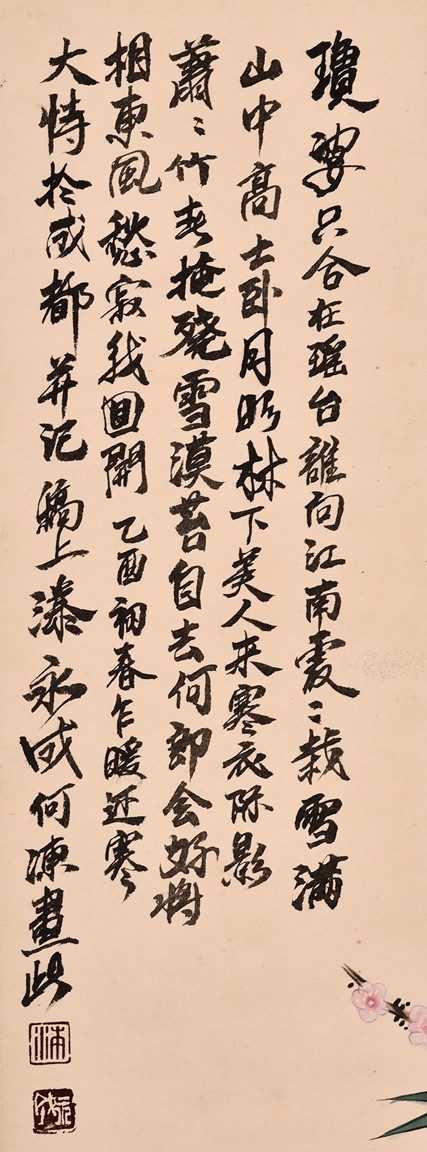 瓊姿只合在瑤台誰向江南處〻栽雪滿
山中高士卧月明林下美人来寒衣踈影
蕭〻竹春掩殘雪漠苔自去何郎会好將
相東風愁寂我回開 乙酉初春乍暖还寒
大恃於成都并记 上瀑永成何凍畫此